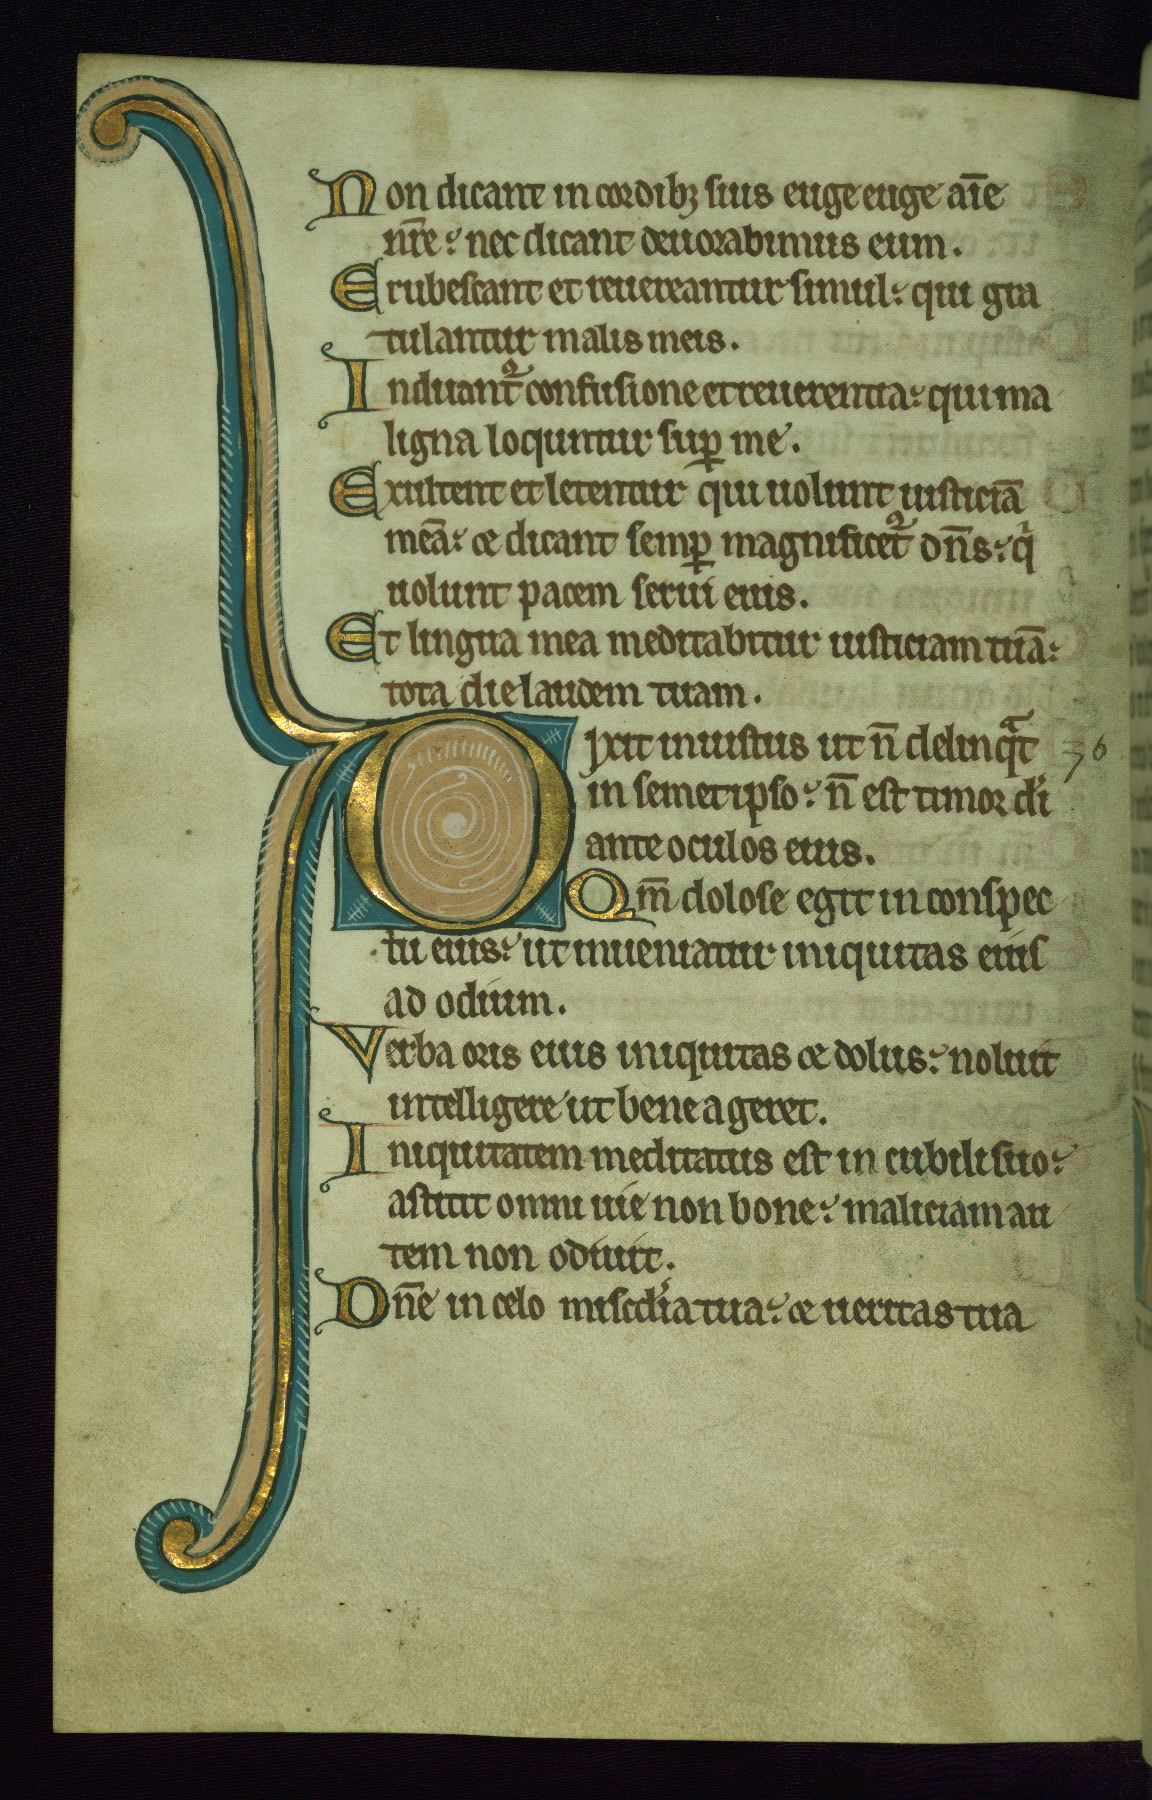 Non dicant in cordibꝫ suis euge euge aīe
nr̄e: nec dicant deuorabimus eum.
Erubescant et reuereantur simul: qui gra
tulantur malis meis.
Induant᷑ confusione et reuerentia: qui ma
ligna locuntur suꝑ me.
Exultent et letentur qui uolunt iusticiā
meā: ⁊ dicant semꝑ magnificet᷑ dn̄s: qⁱ
uolunt pacem serui eius.
Et lingua mea meditabitur iusticiam tuā:
tota die laudem tuam.
Dixit iniustus ut n̄ delinqᵃt 36
in semetipso: n̄ est timor di
ante oculos eius.
Qm̄ dolose egit in conspec
tu eius: ut inueniatur iniquitas eius
ad odium.
Verba oris eius iniquitas ⁊ dolus: noluit
intelligere ut bene ageret.
Iniquitatem meditatus est in cubili suo:
astitit omni uie non bone: maliciam au
tem non odiuit.
Dn̄e in celo misc̄dia tua: ⁊ ueritas tua